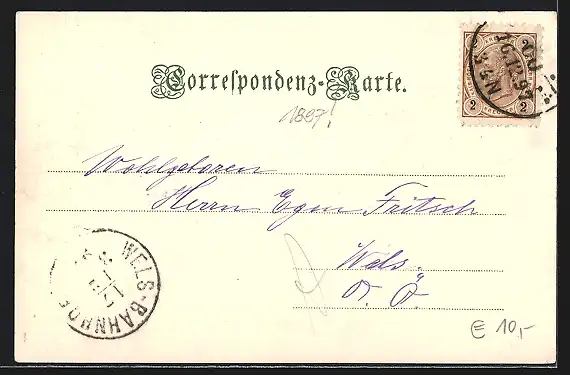 Correspondenz-Karte.
1897!
2 2
16.12.97
3-4N
Wohlgeboren
Herrn Egon Fritsch
Wels.
O. Ö.
WELS-BAHNHOF
17
€ 10,-